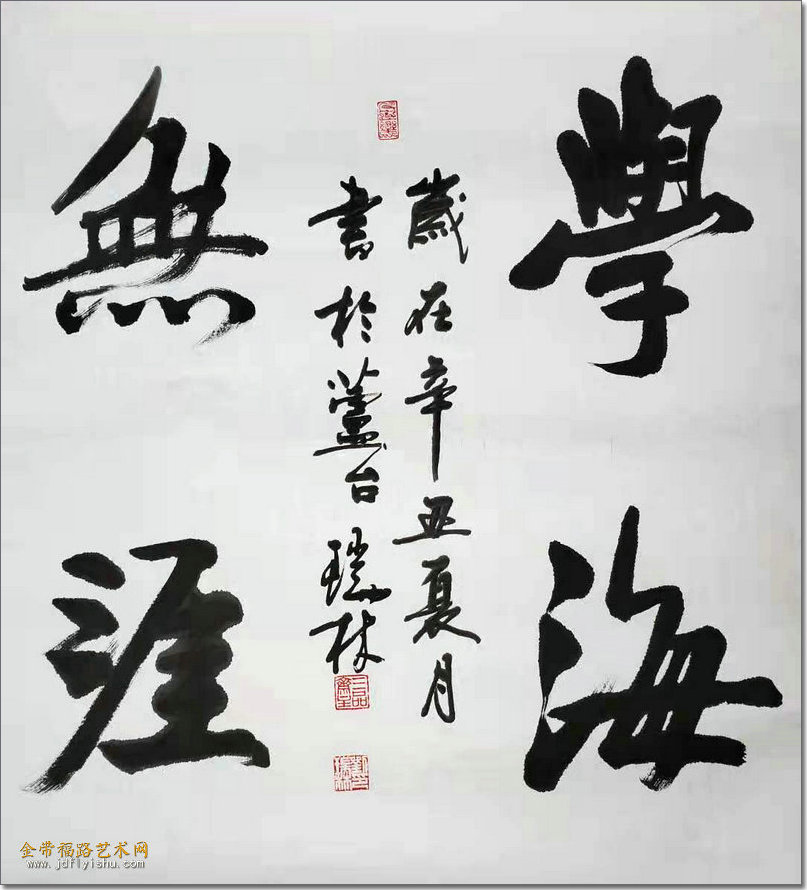 學海
歲在辛丑夏月
書於蘆台瑞林
無涯
金带福路艺术网
www.jdflyishu.com